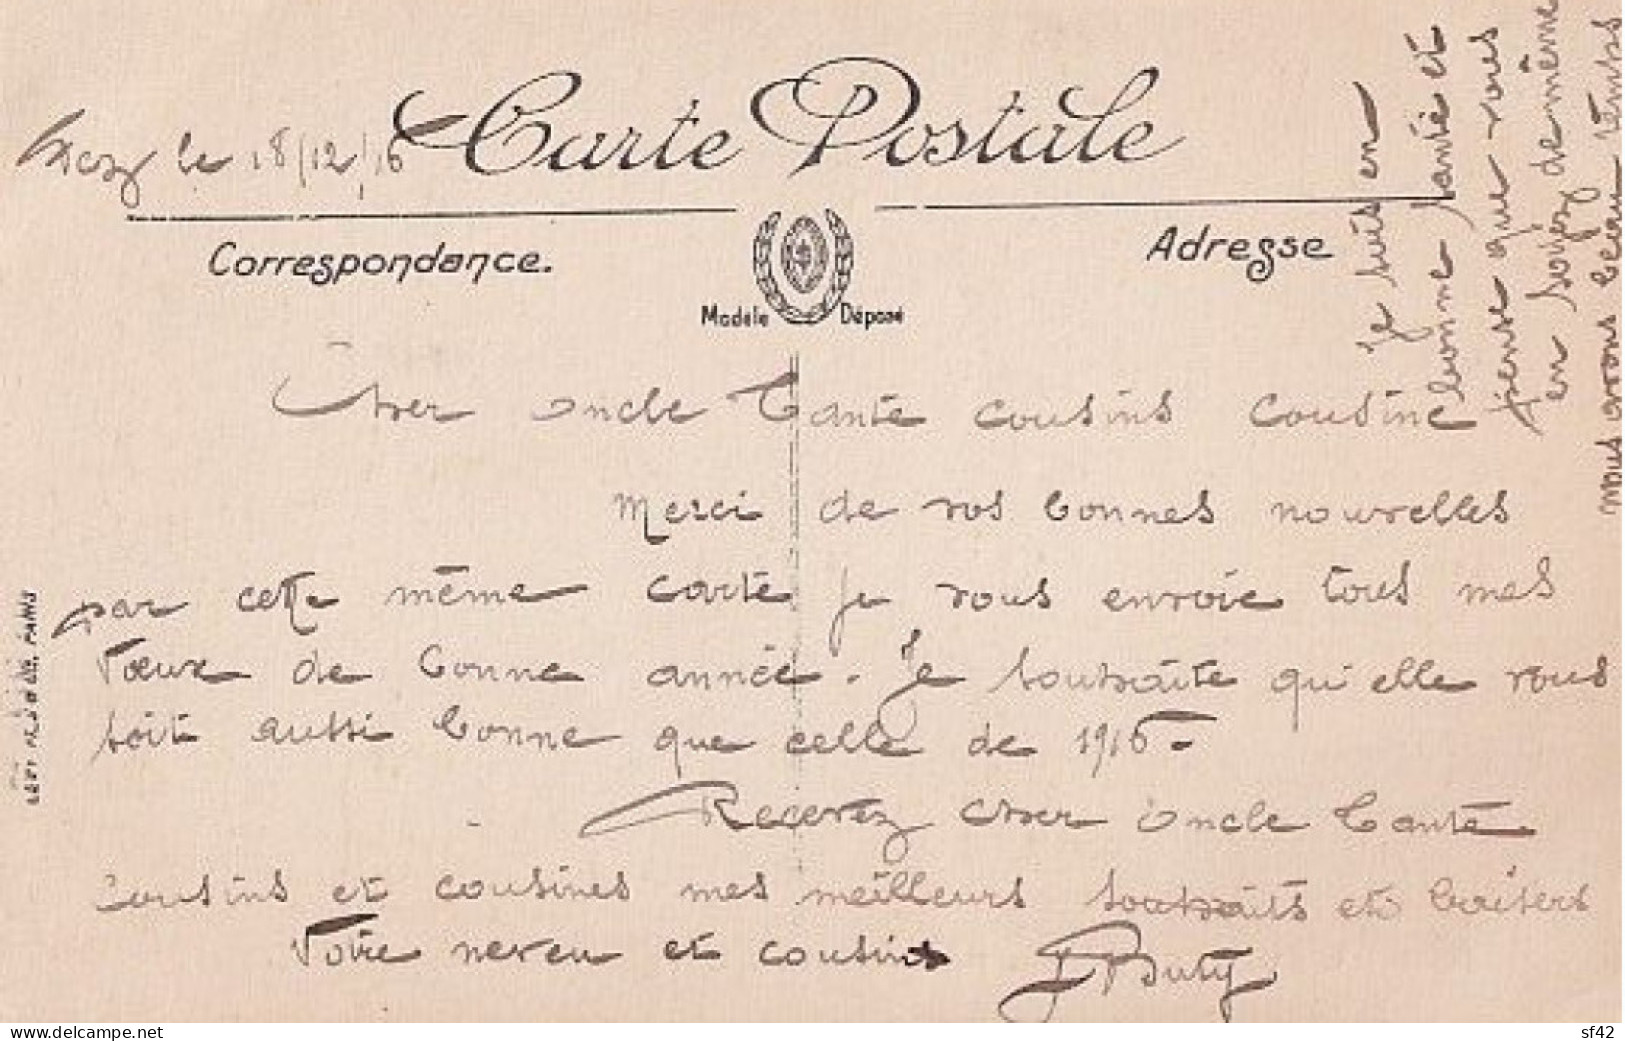 le 18/12/16
Carte Postale
Correspondance.
Adresse
Modèle Déposé
Cher oncle Tante cousins cousine
Merci de vos bonnes nouvelles
par cette même carte je vous envoie tous mes
Vœux de bonne année. Je souhaite qu'elle vous
soit aussi bonne que celle de 1916 -
Recevez cher oncle Tante
cousins et cousines mes meilleurs souhaits et baisers
Votre neveu et cousin
je suis en
bonne santé et
pense que vous
en soyez de même
nous avons beau temps
PARIS
delcampe.net
sf42